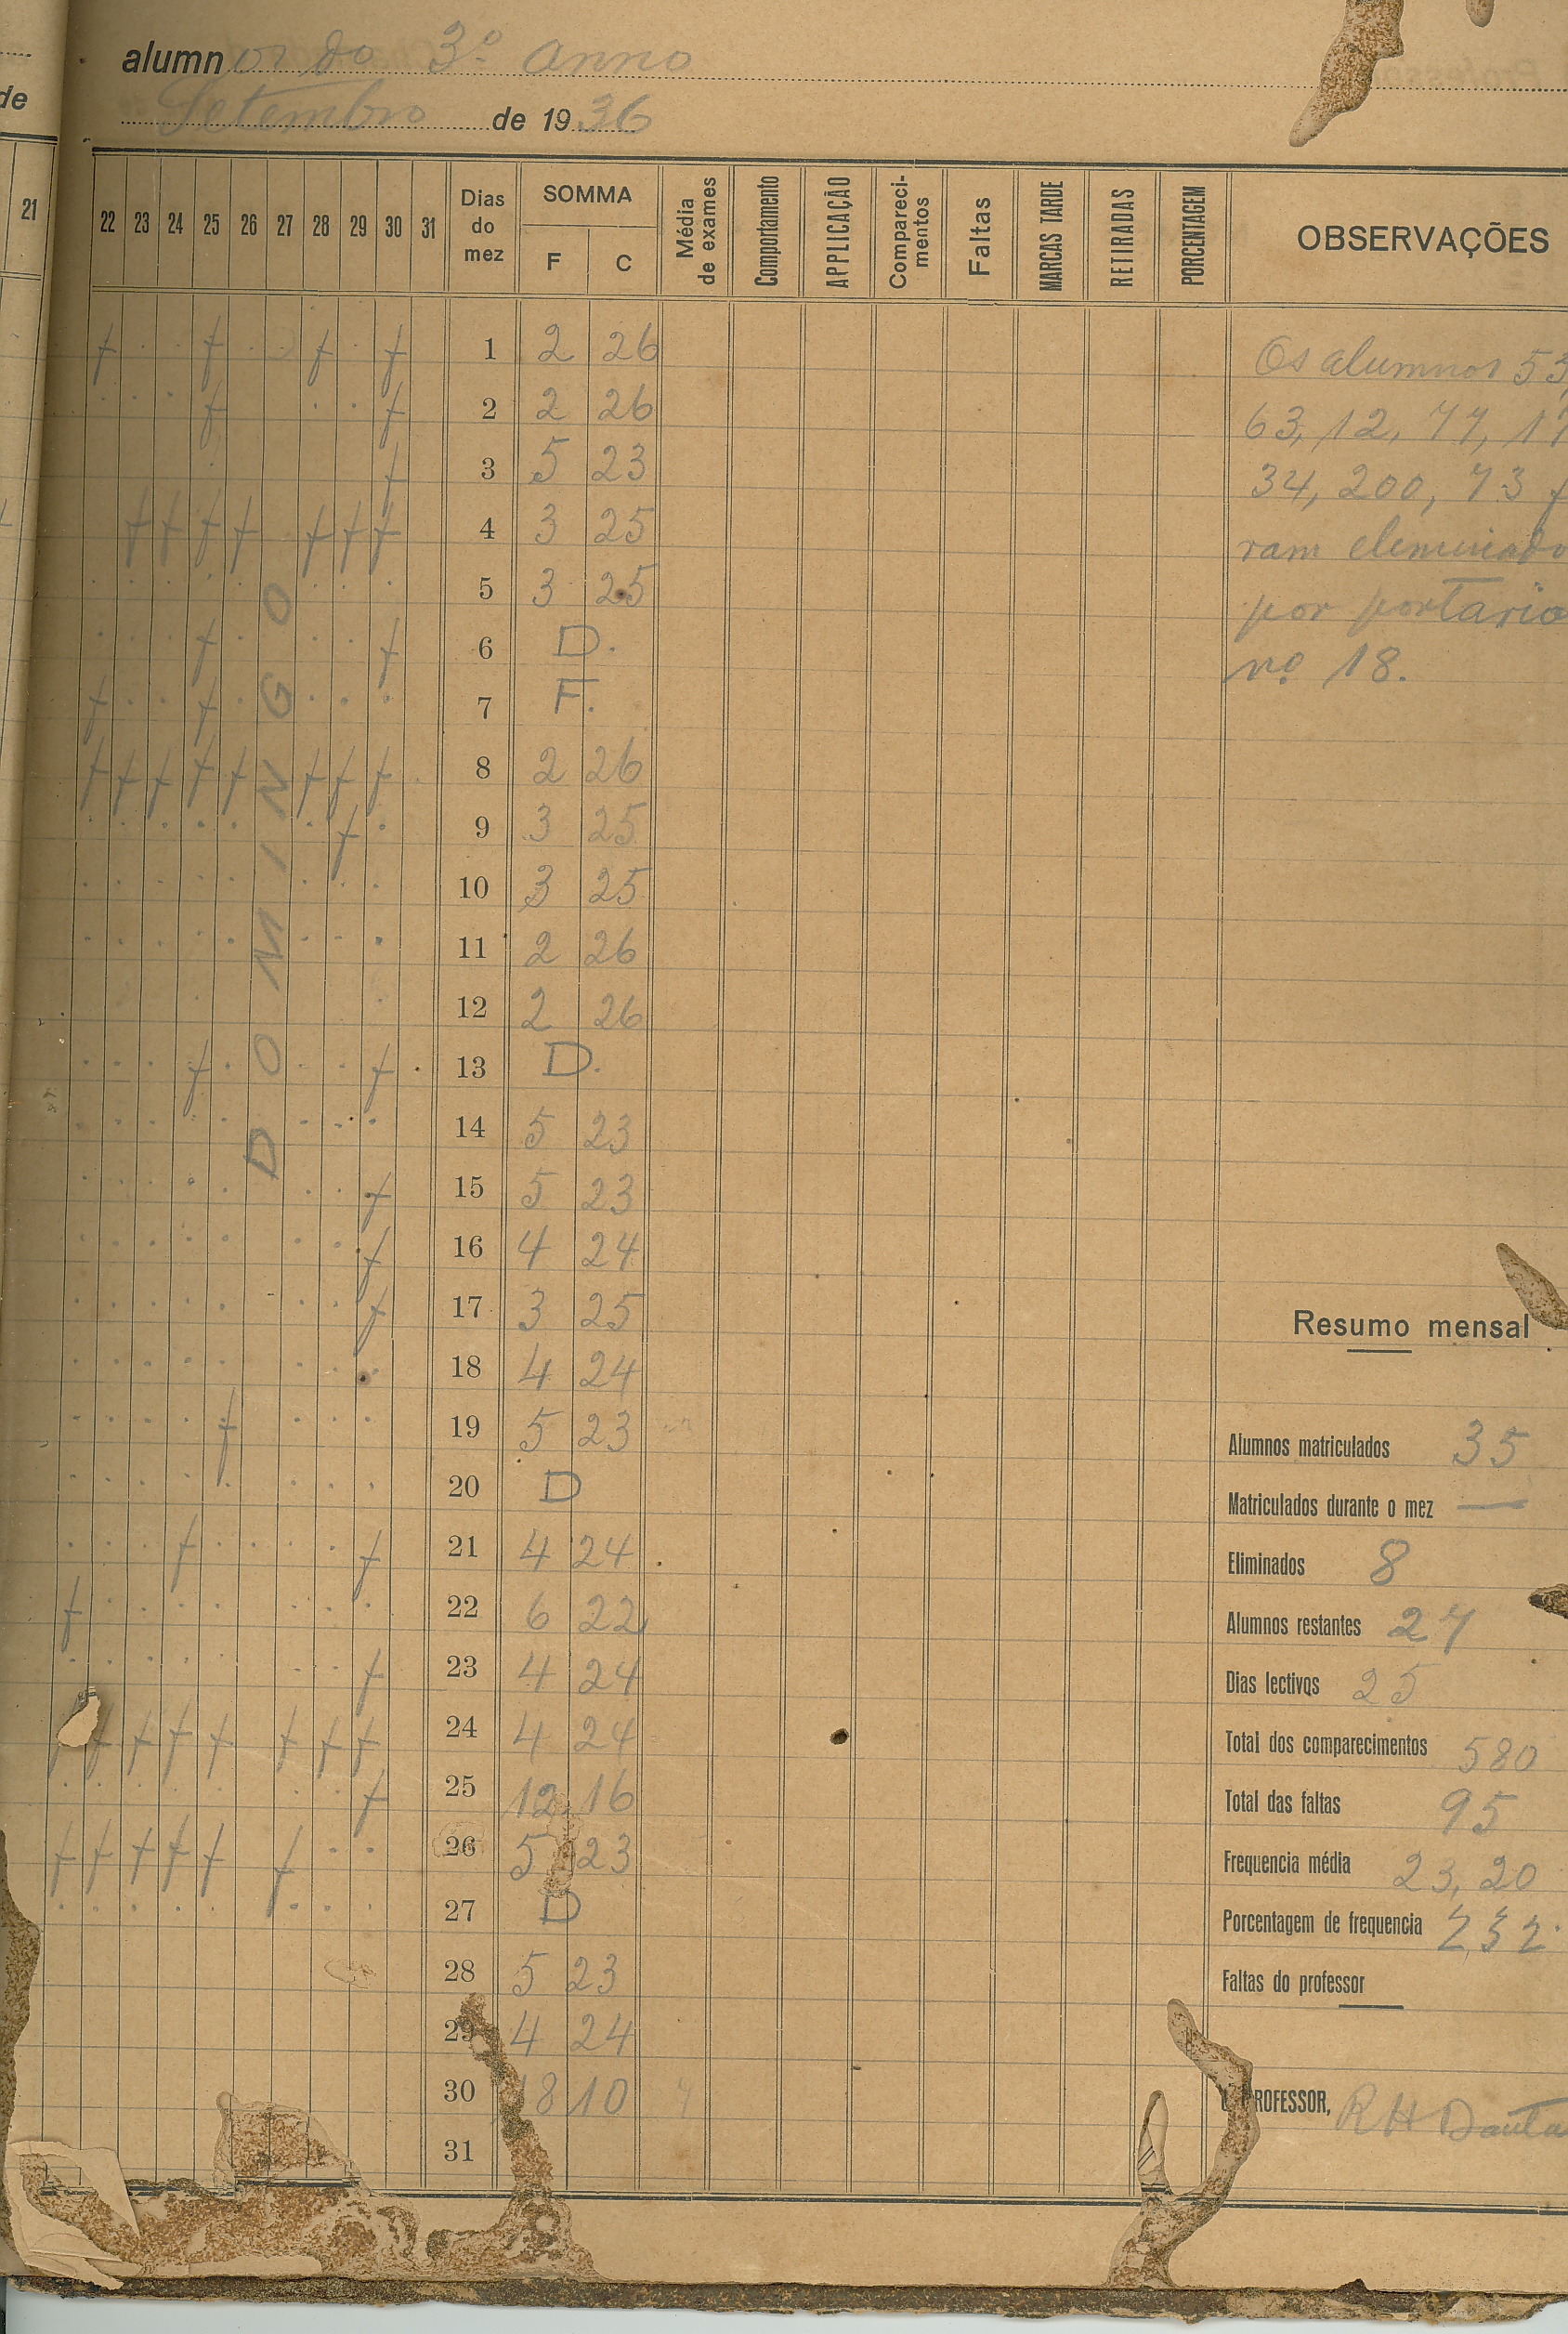 de
21
alumnos do 3º anno
Setembro de 1936
22 23 24 25 26 27 28 29 30 31 Dias do mez SOMMA F C Média de exames Comportamento APPLICAÇÃO Compareci-mentos Faltas MARCAS TARDE RETIRADAS PORCENTAGEM OBSERVAÇÕES
DOMINGO
1 2 26
2 2 26
3 5 23
4 3 25
5 3 25
6 D.
7 F.
8 2 26
9 3 25
10 3 25
11 2 26
12 2 26
13 D.
14 5 23
15 5 23
16 4 24
17 3 25
18 4 24
19 5 23
20 D
21 4 24
22 6 22
23 4 24
24 4 24
25 12 16
26 5 23
27 D
28 5 23
29 4 24
30 18 10
31
Os alumnos 53,
63, 12, 77, 17
34, 200, 73 f
ram eleminado
por portaria
nº 18.
Resumo mensal
Alumnos matriculados 35
Matriculados durante o mez —
Eliminados 8
Alumnos restantes 27
Dias lectivos 25
Total dos comparecimentos 580
Total das faltas 95
Frequencia média 23,20
Porcentagem de frequencia
Faltas do professor
O PROFESSOR, R H Danta